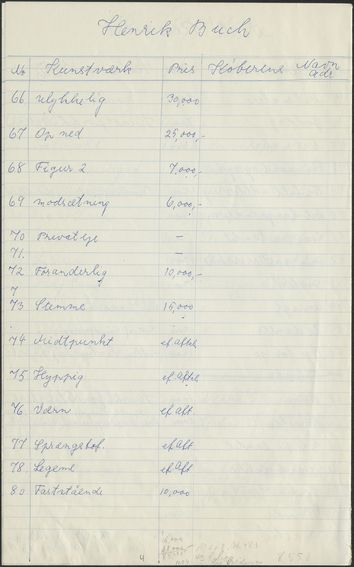 Henrik Buch
No Kunstværk Pris Køberens Navn Adr.
66 ulykkelig 30,000,
67 Op ned 25,000,-
68 Figur 2 7,000,-
69 modsætning 6,000,-
70 Privateje -
71. -
72 Foranderlig 10,000,-
7
73 Stemme 15,000
74 Midtpunkt ef. aftale
75 Hyppig ef. aftale
76 Værn ef. aft.
77 Sprængstof. ef. aft
78. Legeme ef. aft
80 Faststående 10,000
4